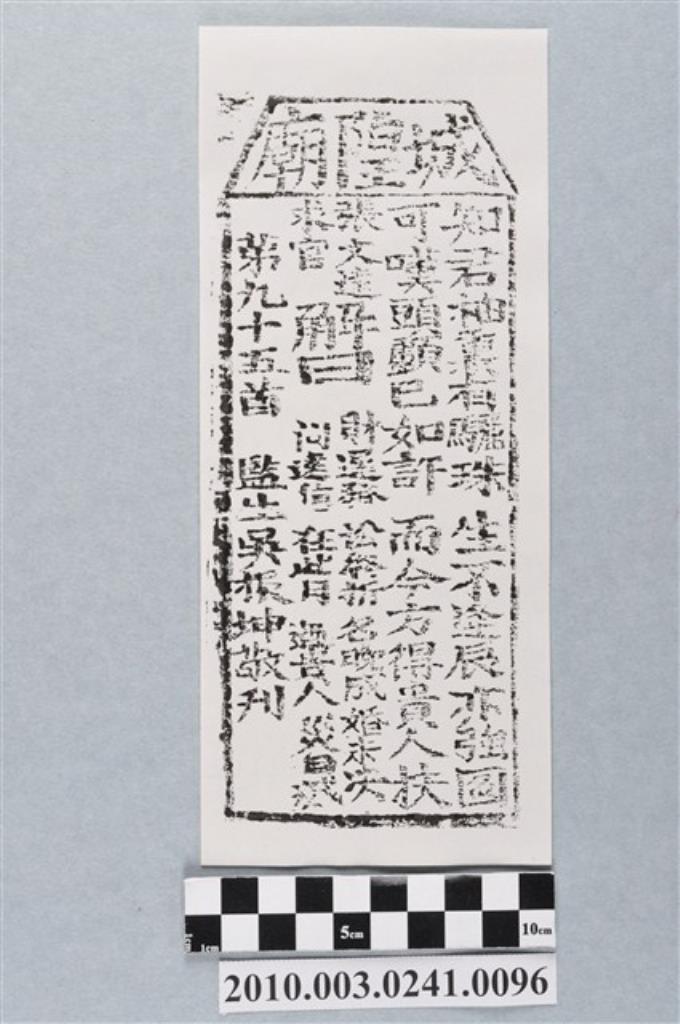 城隍廟
知君袖裏有驪珠 生不逢辰亦強圖
可嘆頭顱已如許 而今方得貴人扶
張文遠 財遲發 訟終折 名晚成 婚未決
求官 解曰 問遠信 在此日 遇貴人 災自滅
第九十五首 監生吳振坤敬刊
1cm 5cm 10cm
2010.003.0241.0096